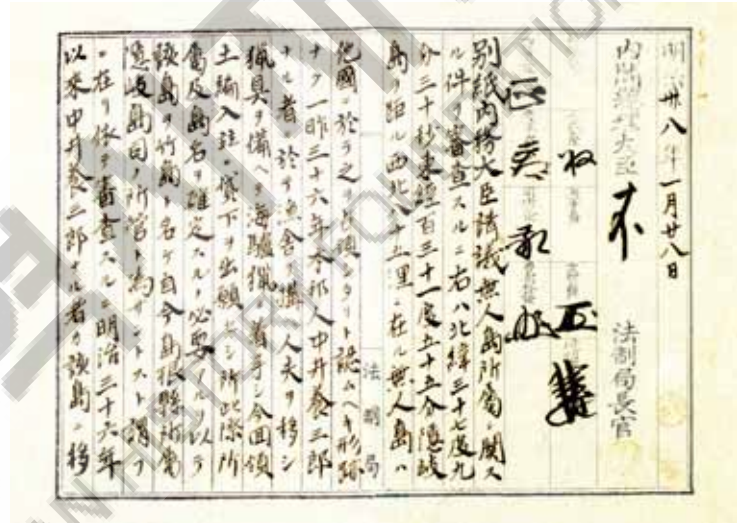 明治卅八年一月廿八日
内閣總理大臣
法制局長官
別紙内務大臣請議無人島所屬ニ關ス
ル件ヲ審査スルニ右ハ北緯三十七度九
分三十秒東經百三十一度五十五分隱岐
島ヲ距ル西北八十五浬ニ在ル無人島ハ
他國ニ於テ之ヲ占領シタリト認ムヘキ形跡
ナク一昨三十六年本邦人中井養三郎
ナル者ニ於テ漁舍ヲ構ヘ人夫ヲ移シ
獵具ヲ備ヘテ海驢獵ニ着手シ今回領
土編入並ニ貸下ヲ出願セシ所此際所
屬及島名ヲ確定スルノ必要アルヲ以テ
該島ヲ竹島ト名ケ自今島根縣所屬
隱岐島司ノ所管ト為サントスト謂フ
ニ在リ依テ審査スルニ明治三十六年
以來中井養三郎ナル者カ該島ニ移
法制局